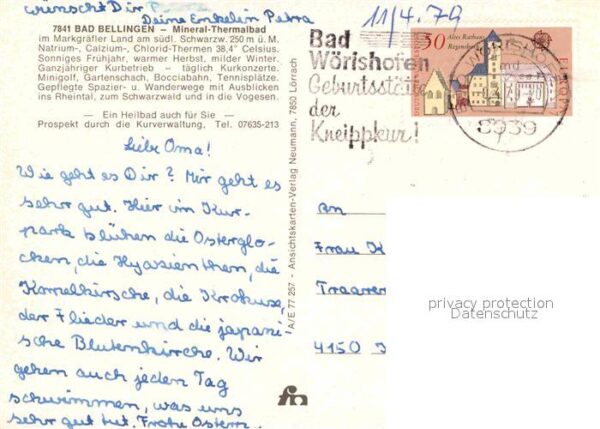 wünscht Dir
Deine Enkelin Petra
11/4.79
7841 BAD BELLINGEN – Mineral-Thermalbad
im Markgräfler Land am südl. Schwarzw. 250 m ü. M.
Natrium-, Calzium-, Chlorid-Thermen 38,4° Celsius.
Sonniges Frühjahr, warmer Herbst, milder Winter.
Ganzjähriger Kurbetrieb – täglich Kurkonzerte.
Minigolf, Gartenschach, Bocciabahn, Tennisplätze.
Gepflegte Spazier- u. Wanderwege mit Ausblicken
ins Rheintal, zum Schwarzwald und in die Vogesen.
— Ein Heilbad auch für Sie —
Prospekt durch die Kurverwaltung, Tel. 07635-213
Liebe Oma!
Wie geht es Dir? Mir geht es
sehr gut. Hier im Kur-
park blühen die Osterglo-
cken, die Hyazienthen, die
Kornelkirsche, die Krokuse,
der Flieder und die japani-
sche Blutenkirche. Wir
gehen auch jeden Tag
schwimmen, was uns
sehr gut tut. Frohe Ostern
A/E 77 257 - Ansichtskarten-Verlag Neumann, 7850 Lörrach
Bad
Wörishofen
Geburtsstätte
der
Kneippkur!
50
Altes Rathaus
Regensburg
EUROPA
DEUTSCHE BUNDESPOST
8939
An
Frau K
4150
privacy protection
Datenschutz